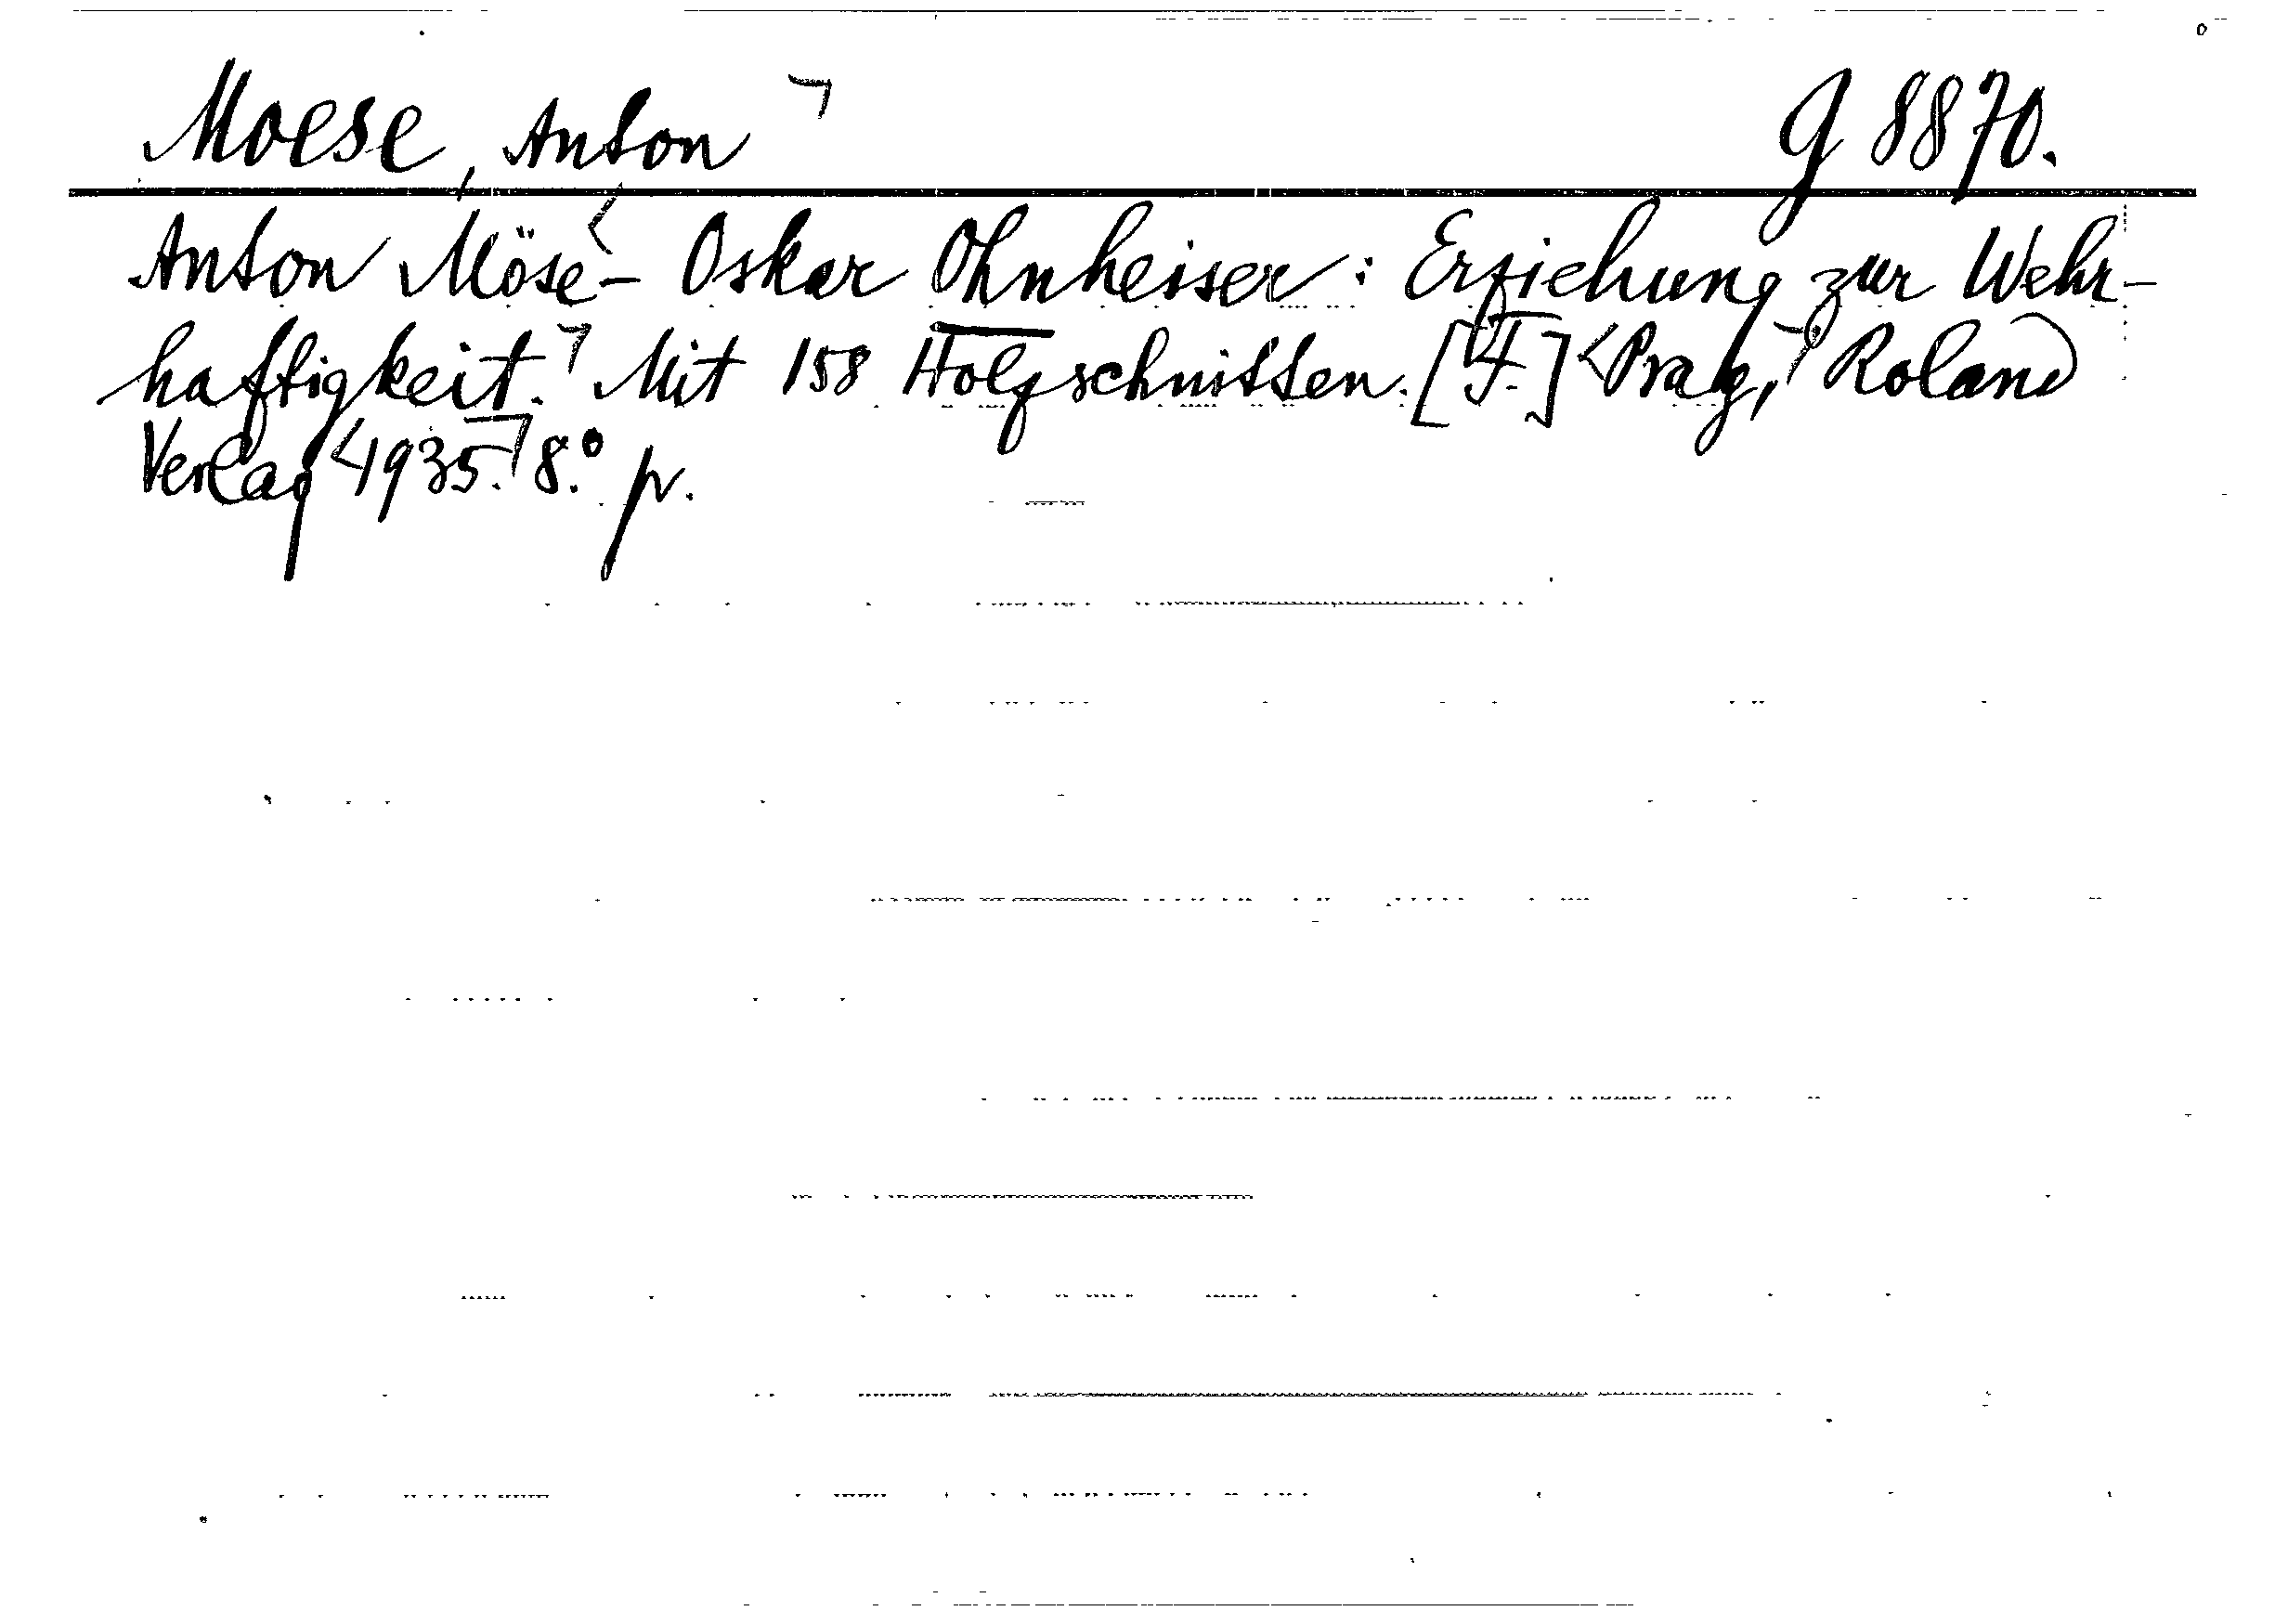 Moese, Anton ⌝ G 8870.
Anton Möse <- Oskar Ohnheiser: Erziehung zur Wehr-
haftigkeit. ⌝ Mit 158 Holzschnitten. [F.] <Prag, ⌝ Roland
Verlag <1935. ⌝ 8.° p.